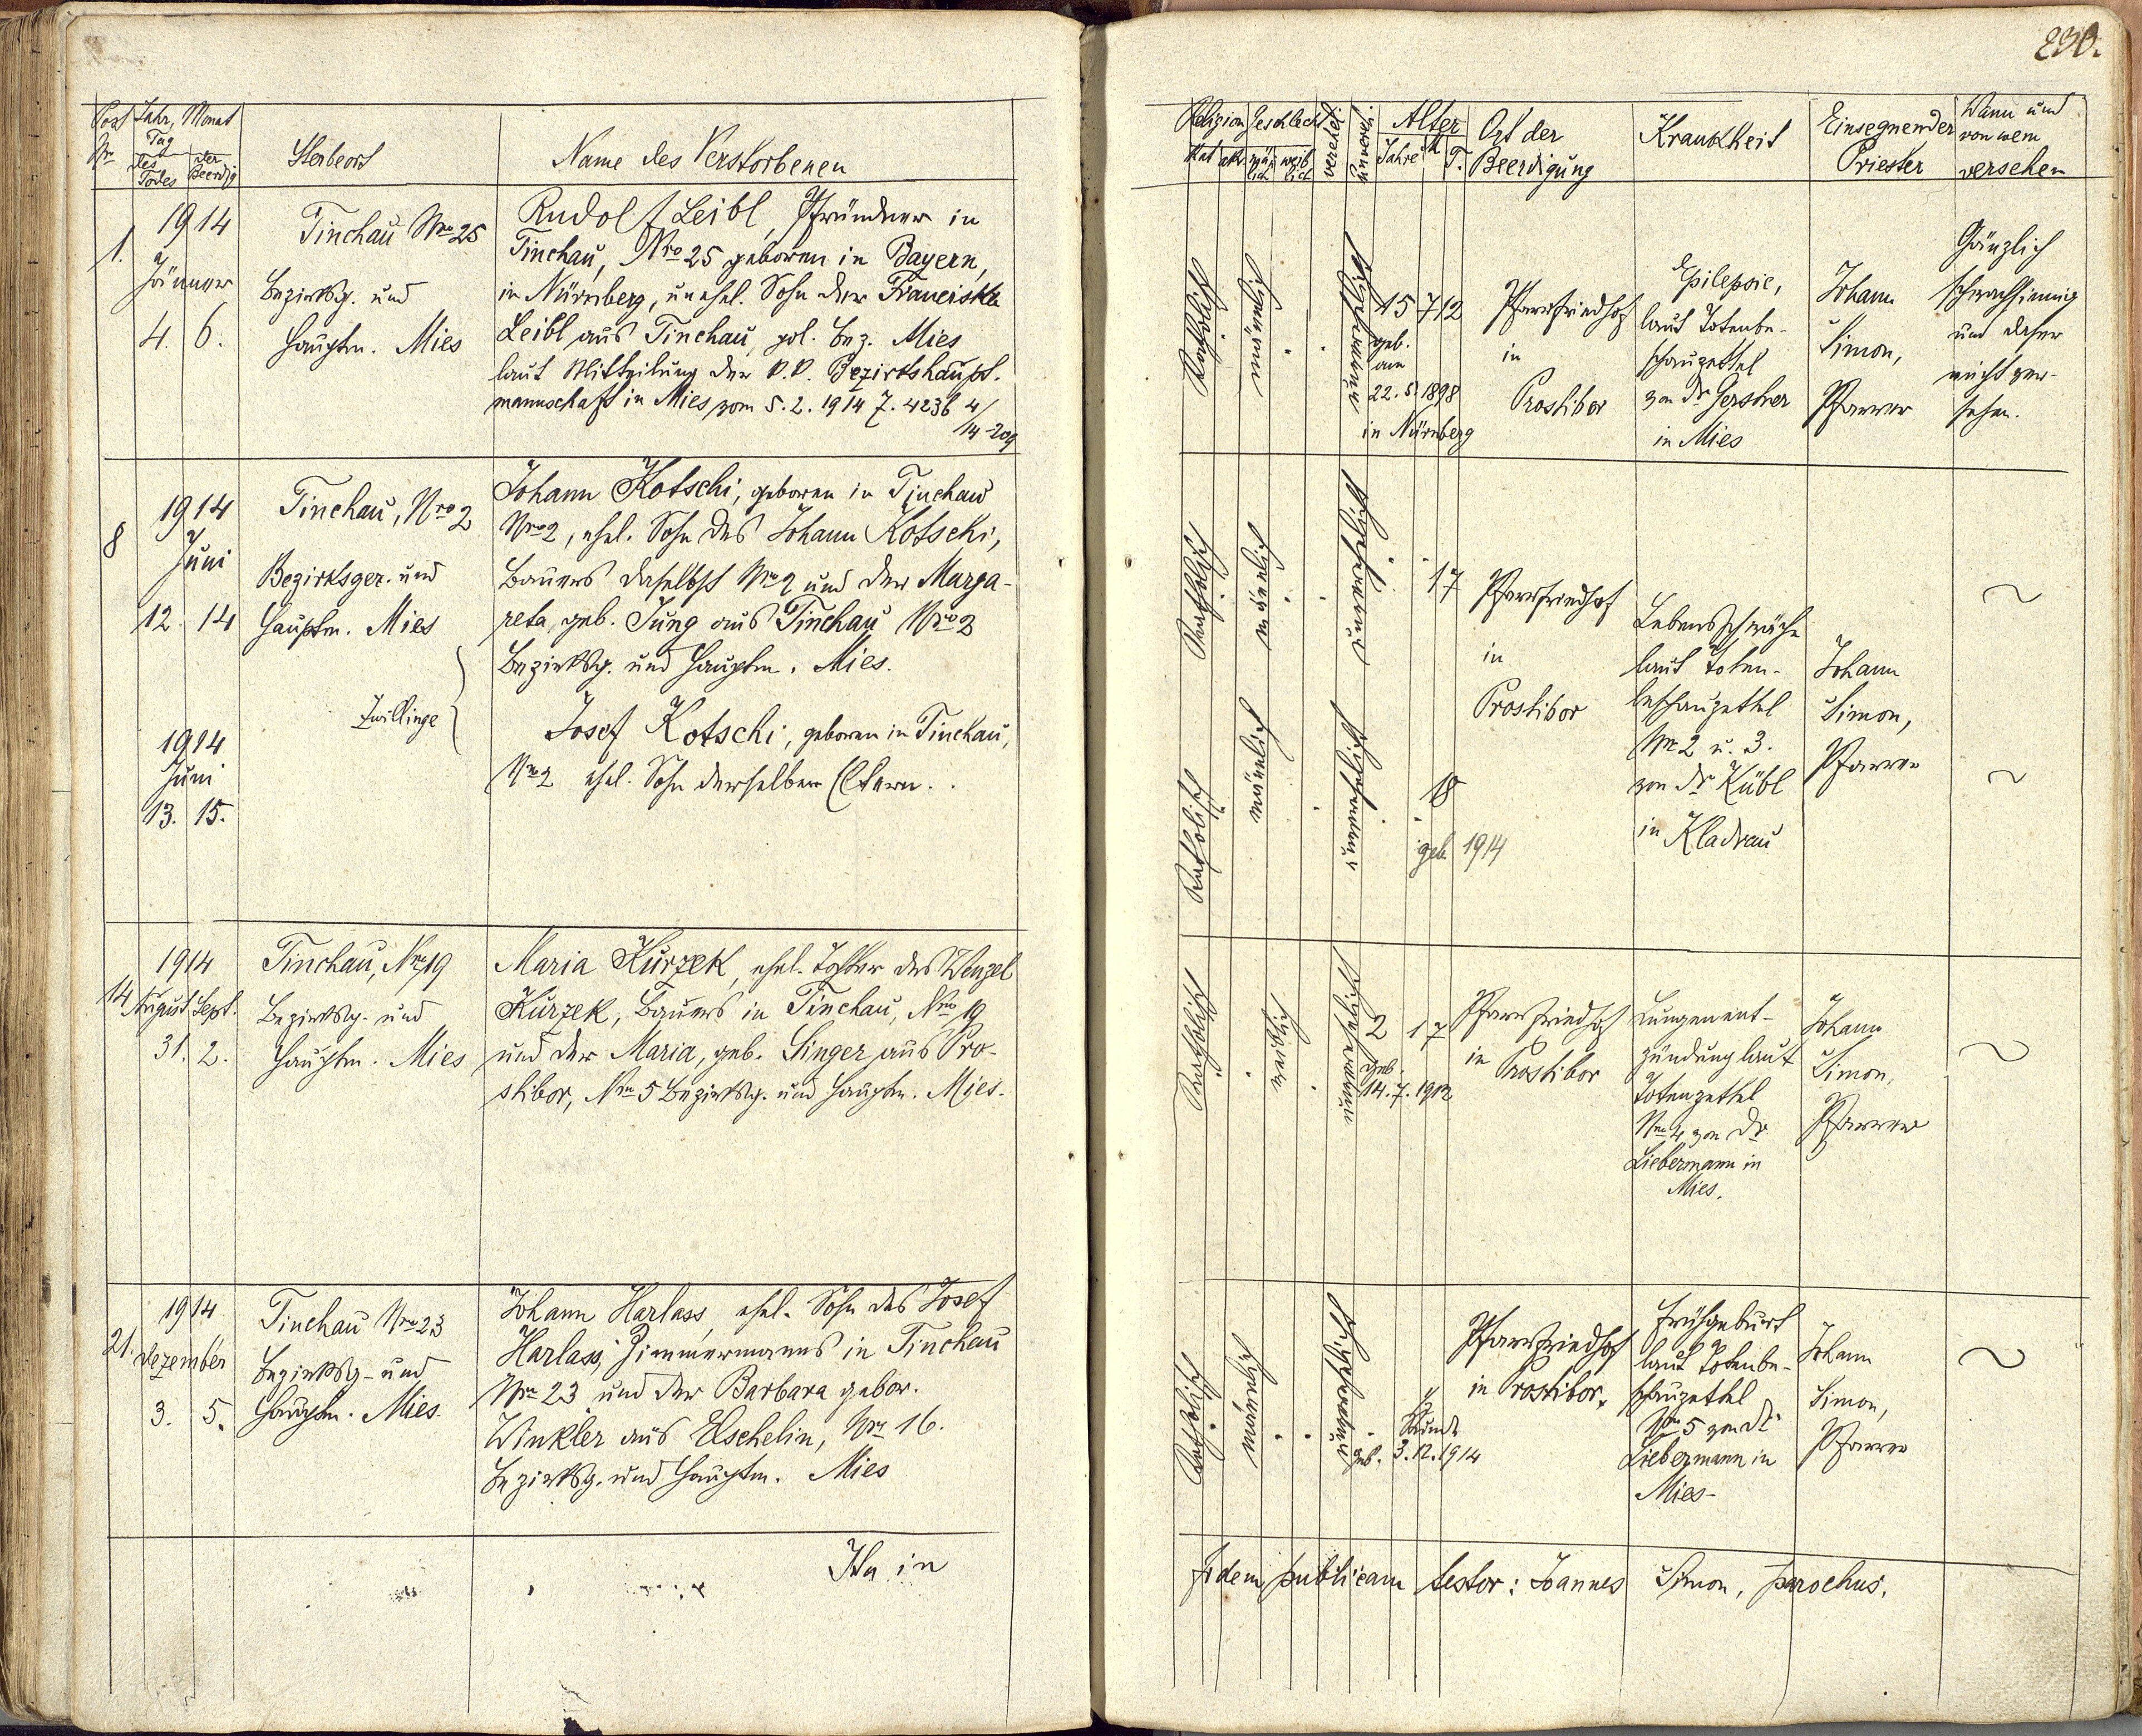 230.
Post Nr.
Jahr, Monat
Tag
des Todes
der Beerdig
Sterbeort
Name des Verstorbenen
1.
1914
Jänner
4. 6.
Tinchau Nro 25
Bezirksg. und
Hauptm. Mies
Rudolf Leibl, Pfründner in
Tinchau, Nro 25 geboren in Bayern,
in Nürnberg, unehel. Sohn der Franciska
Leibl aus Tinchau, pol. Bez. Mies
laut Mitteilung der k.k. Bezirkshaupt.
mannschaft in Mies vom 5.2.1914 Z. 4236 4/
14-209
8
1914
Juni
12. 14
Tinchau, Nro 2
Bezirksger. und
Hauptm. Mies
Johann Kotschi, geboren in Tinchau
Nro 2, ehel. Sohn des Johann Kotschi,
Bauers daselbst Nro 2 und der Marga-
reta, geb. Jung aus Tinchau Nro 2
Bezirksg. und Hauptm. Mies.
Zwillinge
1914
Juni
13. 15.
Josef Kotschi, geboren in Tinchau,
Nro 2 ehel. Sohn derselben Eltern.
14
1914
August Sept.
31. 2.
Tinchau, Nro 19
Bezirksg. und
Hauptm. Mies
Maria Kurzek, ehel. Tochter des Wenzel
Kurzek, Bauers in Tinchau, Nro 19
und der Maria, geb. Singer aus Pro-
stibor, Nro 5 Bezirksg. und Hauptm. Mies.
21.
1914
Dezember
3. 5.
Tinchau Nro 23
Bezirksg. und
Hauptm. Mies.
Johann Harlass, ehel. Sohn des Josef
Harlass, Zimmermanns in Tinchau
Nro 23 und der Barbara gebor.
Winkler aus Elschelin, Nro 16.
Bezirksg. und Hauptm. Mies
Ita in
Religion
Kat akt
Geschlecht
män lich
weib lich
verehel.
unvereh.
Alter
Jahre M T.
Ort der
Beerdigung
Krankheit
Einsegnender
Priester
Wann und
von wem
versehen
Katholisch
männlich
unverehelicht
15 7 12
geb.
am
22.5.1898
in Nürnberg
Pfarrfriedhof
in
Prostibor
Epilepsie,
laut Totenbe-
schauzettel
von Dr Gerstner
in Mies
Johann
Simon,
Pfarrer
Gänzlich
schwachsinnig
und daher
nicht ver-
sehen.
Katholisch
männlich
unverehelicht
17
Pfarrfriedhof
in
Prostibor
Lebensschwäche
laut Toten-
beschauzettel
Nr 2 u. 3.
von Dr Kübl
in Kladrau
Johann
Simon,
Pfarrer
Katholisch
männlich
unverehelicht
18
geb. 1914
Katholisch
weiblich
unverehelicht
2 1 7
geb.
14.7.1912
Pfarrfriedhof
in Prostibor
Lungenent-
zündung laut
Totenzettel
Nro 4 von Dr
Liebermann in
Mies.
Johann
Simon,
Pfarrer
Katholisch
männlich
unverehelicht
½
Stunde
geb. 3.12.1914
Pfarrfriedhof
in Prostibor.
Frühgeburt
laut Totenbe-
schauzettel
Nro 5 von Dr.
Liebermann in
Mies-
Johann
Simon,
Pfarrer
fidem publicam testor: Joannes Simon, parochus.